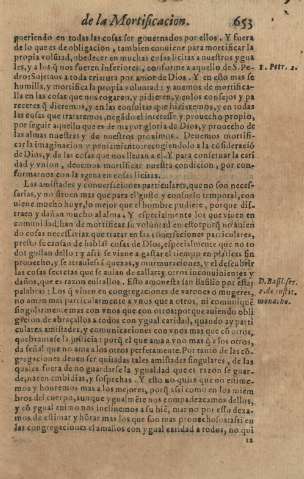 de la Mortificacion. 653
queriendo en todas las cosas ser gouernados por ellos. Y fuera
de lo que es de obligacion, tambien conuiene para mortificar la
propia volũtad, obedecer en muchas cosas licitas a nuestros ygua
les, y a los q̃ nos fueren inferiores, conforme a aquello de S. Pe- 1. Petr. 2.
dro: Sujetaos a toda criatura por amor de Dios. Y en esto mas se
humilla, y mortifica la propia voluntad: y auemos de mortifica-
lla en las cosas que nos rogaren, y pidieren, y en los consejos y pa
receres q̃ dieremos, y en las consultas que hizieremos, y en todas
las cosas que trataremos, negado el interesse, y prouecho propio,
por seguir aquello que es de mayor gloria de Dios, y prouecho de
las almas nuestras y de nuestros proximos. Deuemos mortifi-
car la imaginacion y pensamiento recogiendolo a la cõsideraciõ
de Dios, y de las cosas que nos lleuan a el. Y para conseruar la cari
dad y vnion, deuemos mortificar nuestra condicion, por con-
formarnos con la agena en cosas licitas.
Las amistades y conuersaciones particulares, que no son neces-
sarias, y no siruen mas que para el gusto y consuelo temporal, con
uiene mucho huyr, lo mejor que el hombre pudiere, porque dis-
traen y dañan mucho al alma. Y especialmente los que viuen en
comunidad, han de mortificar su voluntad en esto: porq̃ no auien
do cosas necessarias que tratar en las conuersaciones particulares,
presto se cansan de hablar cosas de Dios, especialmente que no to
dos gustan dello: y assi se viene a gastar el tiempo en platicas sin
prouecho, y se atrauiessan quexas, y murmuraciones, y el descubrir
las cosas secretas que se auian de callar, y otros inconuinientes y
daños, que es razon euitallos. Esto amonesta san Basilio por estas D. Basil. ser.
palabras: Los q̃ viuen en congregaciones de varones o mugeres,
no amen mas particularmente a vnos que a otros, ni comuniquẽ monacho.
singularmente mas con vnos que con otros: porque auiendo obli
gacion de abraçallos a todos con ygual caridad, quando ay parti
culares amistades, y comunicaciones con vnos mas que cõ otros,
quebrantase la justicia: porq̃ el que ama a vno mas q̃ a los otros,
da señal que no ama a los otros perfetamente. Por tanto de las cõ
gregaciones deuen ser quitadas tales amistades singulares, de las
quales fuera de no guardarse la ygualdad que es razon se guar-
de, nacen embidias, y sospechas. Y esto no quita que no estime-
mos y honremos mas a los mejores, porq̃ assi como en los miem
bros del cuerpo, aunque ygualmẽte nos compadezcamos dellos,
y cõ ygual animo nos inclinemos a su biẽ, mas no por esso dexa-
mos de estimar y hõrar mas los que son mas prouechosos: assi en
las congregaciones el amallos con ygual caridad a todos, no qui
ta